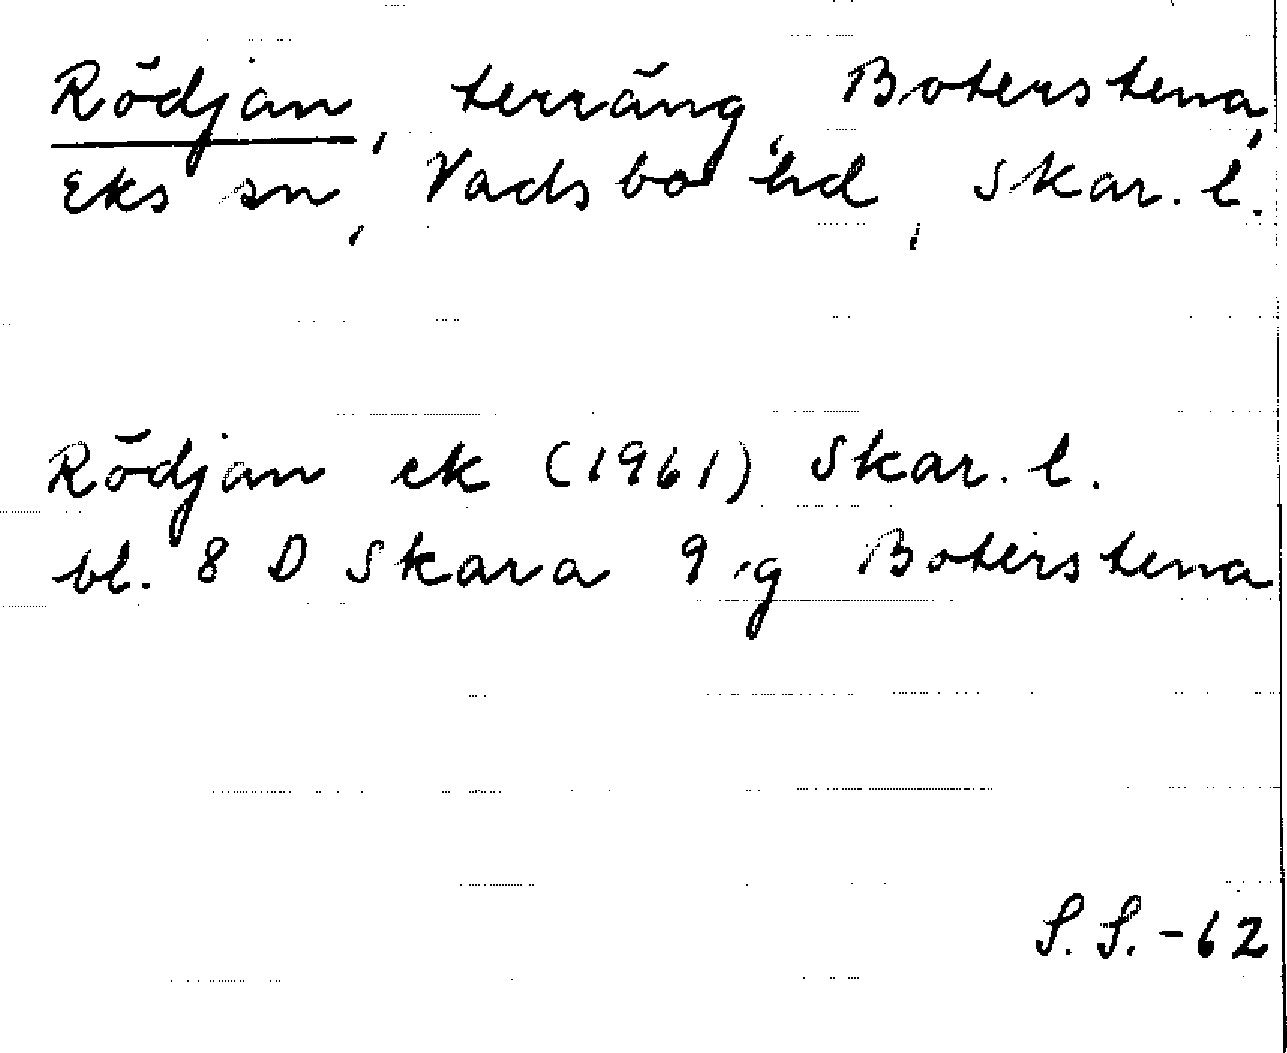 Rödjan, terräng, Boterstena,
Eks sn, Vadsbo hd, Skar. l.
Rödjan ek (1961) Skar. l.
bl. 8 D Skara 9 g Boterstena
S. S. - 62